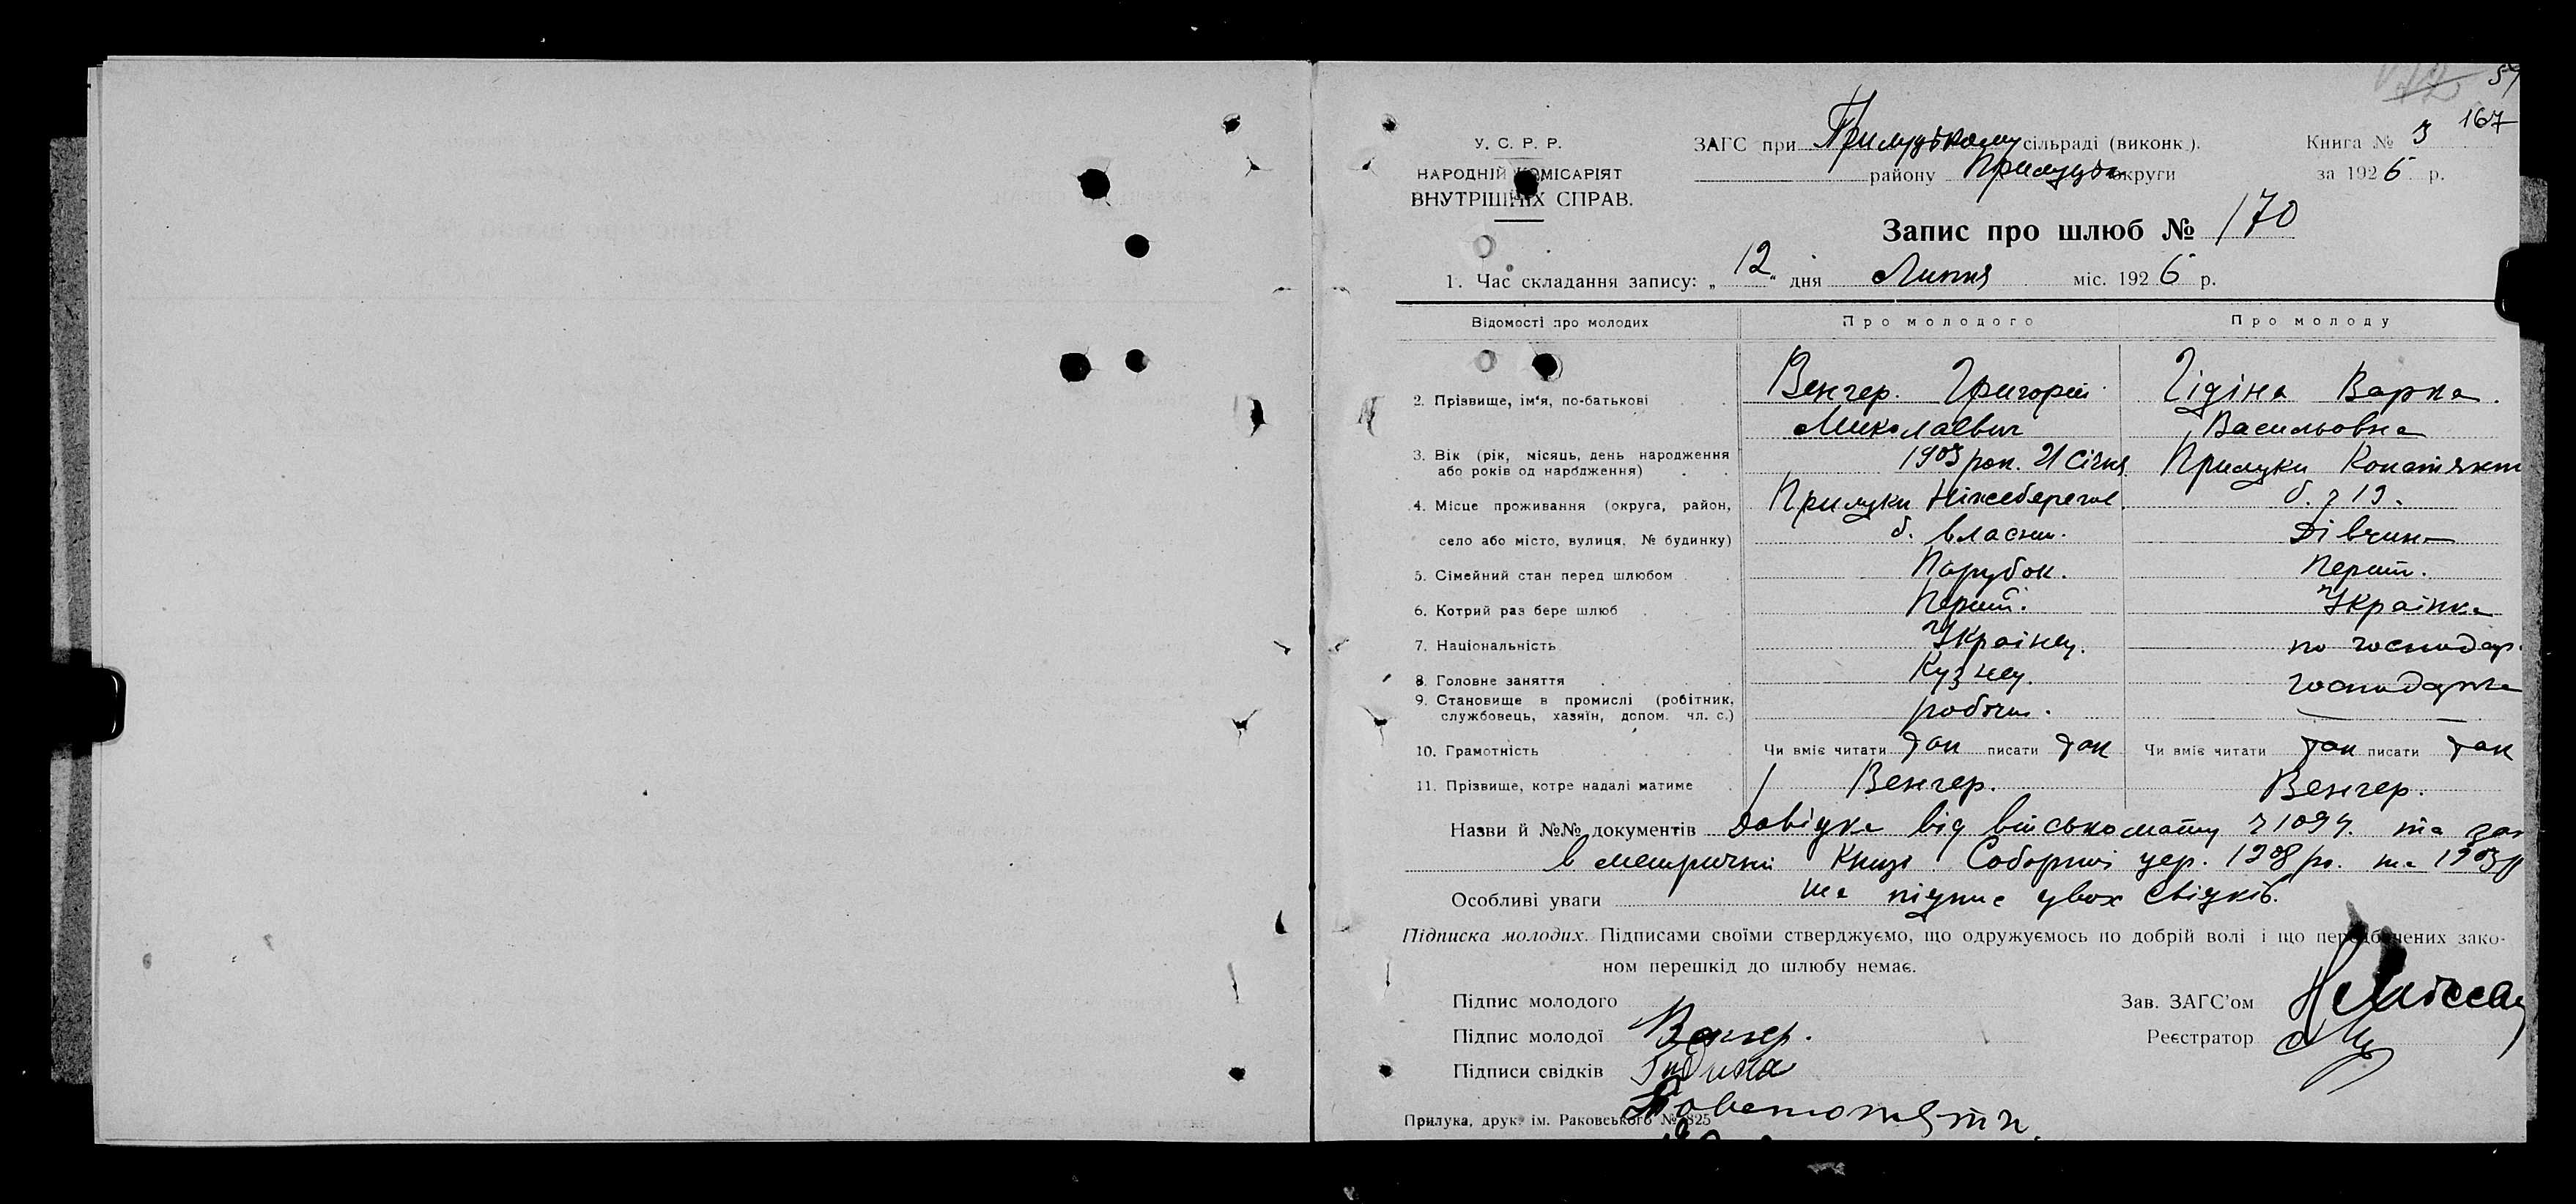 167
У. С. Р. Р.
НАРОДНІЙ КОМІСАРІЯТ
ВНУТРІШНІХ СПРАВ.
ЗАГС при Прилуцькому сільраді (виконк.).
району Прилуцьк округи
Книга № 3
за 1926 р.
Запис про шлюб № 170
1. Час складання запису: „12“ дня Липня міс. 1926 р.
Відомості про молодих
Про молодого
Про молоду
2. Прізвище, ім'я, по-батькові
Венгер. Григорій
Миколаевич
Гідіна Варка.
Васильовна
3. Вік (рік, місяць, день народження
або років од народження)
1903 рок. 21 Січня
Прилуки
4. Місце проживання (округа, район,
село або місто, вулиця, № будинку)
Прилуки
б. власн.
б. 19.
Дівчина
5. Сімейний стан перед шлюбом
Парубок.
Перший.
6. Котрий раз бере шлюб
Перший.
Українка
7. Національність
Українец.
по господар.
8. Головне заняття
Кузнец.
господарка
9. Становище в промислі (робітник,
службовець, хазяїн, допом. чл. с.)
робочий.
10. Грамотність
Чи вміє читати так писати так
Чи вміє читати так писати так
11. Прізвище, котре надалі матиме
Венгер.
Венгер.
Назви й №№ документів Довідка від військомату 1094 та
в метричній книзі Соборної цер. 1908 р. та 1903 р
Особливі уваги та підпис двох свідків.
Підписка молодих. Підписами своїми стверджуємо, що одружуємось по добрій волі і що передбачених зако-
ном перешкід до шлюбу немає.
Підпис молодого
Підпис молодої Венгер.
Підписи свідків Гидина
Зав. ЗАГС'ом
Реєстратор
Прилука, друк. ім. Раковського № 825